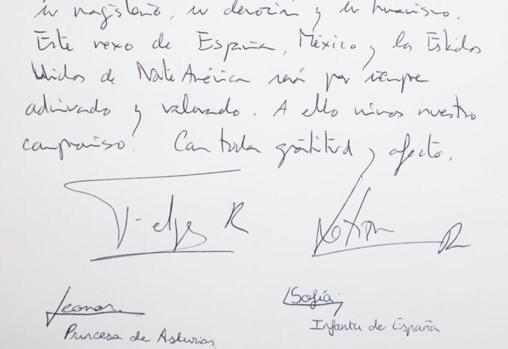 su magisterio, su devoción y su humanismo.
Este nexo de España, México y los Estados
Unidos de Norte América será por siempre
admirado y valorado. A ello unimos nuestro
compromiso. Con toda gratitud y afecto,
Felipe R
Letizia R
Leonor
Sofía
Princesa de Asturias
Infanta de España